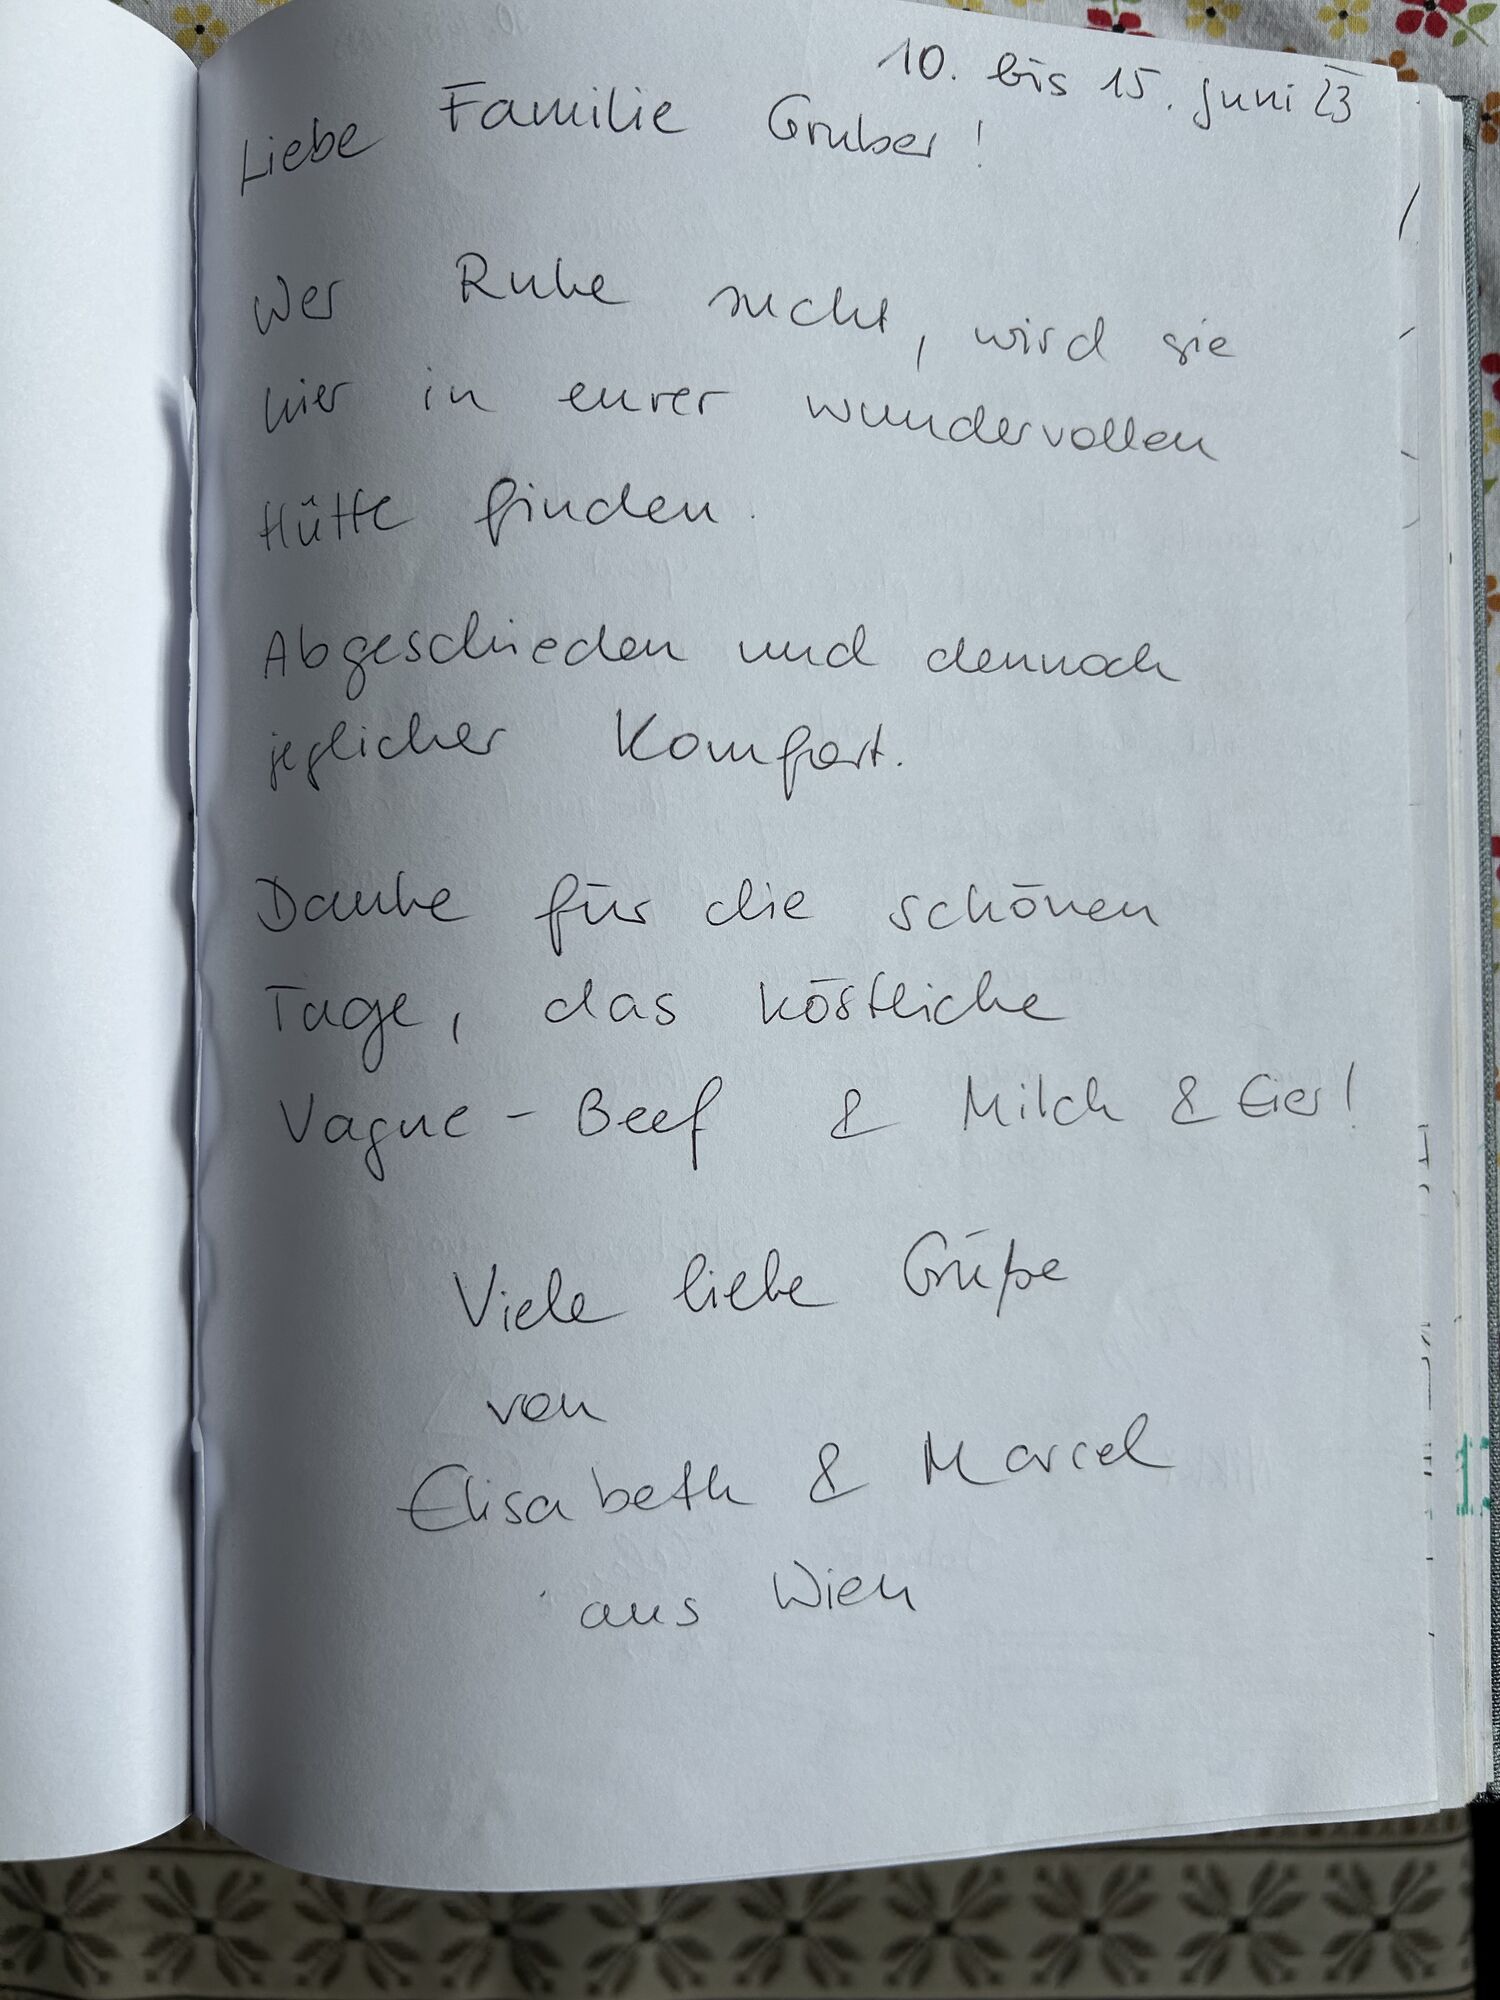 10. bis 15. Juni 23
Liebe Familie Gruber!
Wer Ruhe sucht, wird sie
hier in eurer wundervollen
Hütte finden.
Abgeschieden und dennoch
jeglicher Komfort.
Danke für die schönen
Tage, das köstliche
Vague-Beef & Milch & Eier!
Viele liebe Grüße
von
Elisabeth & Marcel
aus Wien